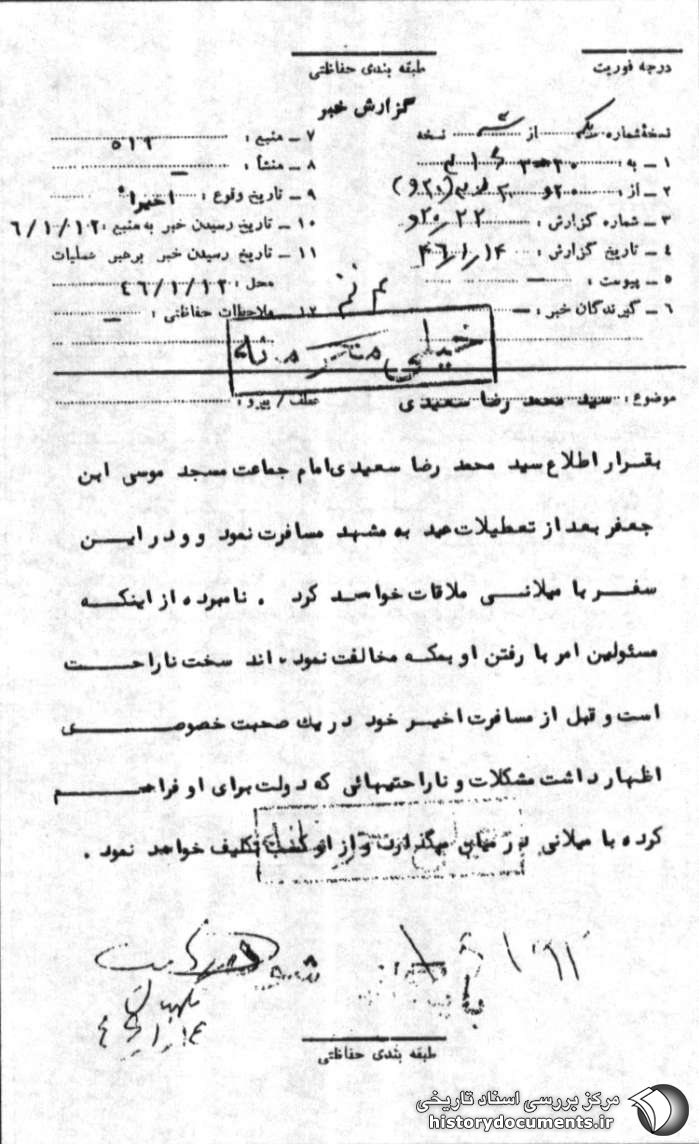 درجه فوریت
طبقه بندی حفاظتی
گزارش خبر
نسخهٔ شماره یک از سه نسخه
۱ ـ به :
۲ ـ از :
۳ ـ شماره گزارش : ۲۲
۴ ـ تاریخ گزارش : ۴۶/۱/۱۴
۵ ـ پیوست : ـ
۶ ـ گیرندگان خبر : ـ
۷ ـ منبع :
۸ ـ منشأ : ـ
۹ ـ تاریخ وقوع : اخیرا"
۱۰ ـ تاریخ رسیدن خبر به منبع : ۶/۱/۱۲
۱۱ ـ تاریخ رسیدن خبر برهبر عملیات
محل : ۴۶/۱/۱۲
۱۲ ـ ملاحظات حفاظتی : ـ
خیلی محرمانه
موضوع : سید محمد رضا سعیدی
عطف / پیرو :
بقرار اطلاع سید محمد رضا سعیدی امام جماعت مسجد موسی ابن
جعفر بعد از تعطیلات عید به مشهد مسافرت نمود و ودر این
سفر با میلانی ملاقات خواهد کرد . نامبرده از اینکه
مسئولین امر با رفتن او بمکه مخالفت نموده اند سخت ناراحت
است و قبل از مسافرت اخیر خود در یك صحبت خصوصی
اظهار داشت مشکلات و ناراحتیهائی که دولت برای او فراهم
کرده با میلانی در میان میگذارد و از او کسب تکلیف خواهد نمود .
۴۶/۱/۱۴
طبقه بندی حفاظتی
مرکز بررسی اسناد تاریخی
historydocuments.ir